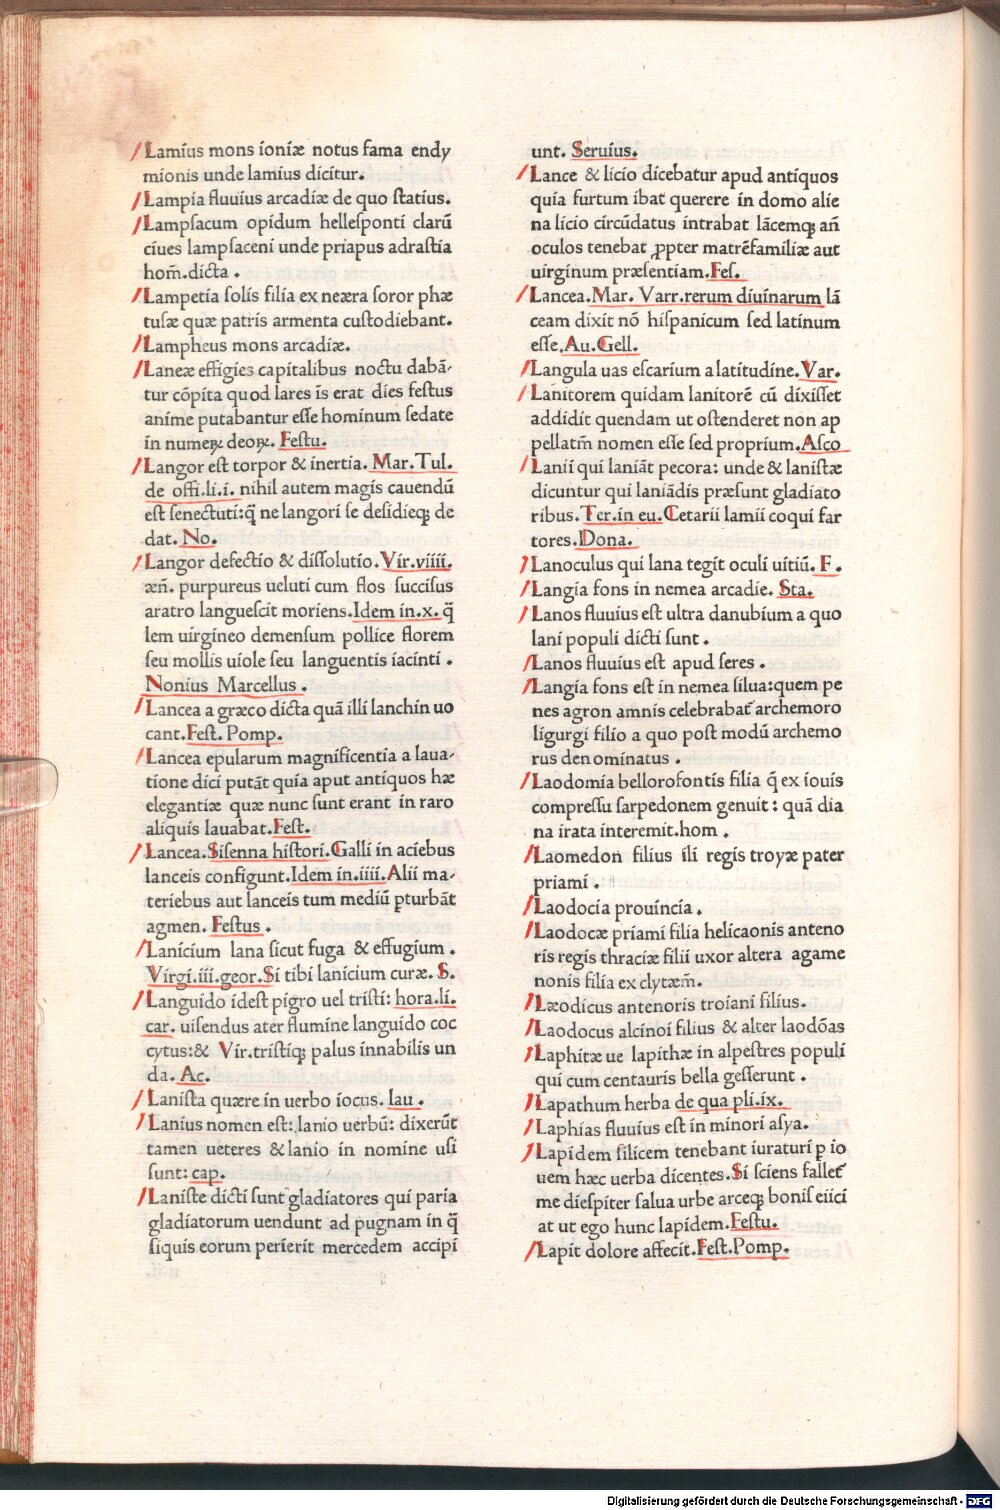 Lamius mons ioniæ notus fama endy
mionis unde lamius dicitur.
Lampia fluuius arcadiæ de quo ſtatius.
Lampſacum opidum helleſponti clarū
ciues lampſaceni unde priapus adraſtia
hom̄.dicta .
Lampetia ſolis filia ex neæra ſoror phæ
tuſæ quæ patris armenta cuſtodiebant.
Lampheus mons arcadiæ.
Laneæ effigies capitalibus noctu dabā-
tur cōpita quod lares is erat dies feſtus
anime putabantur eſſe hominum ſedate
in numeꝝ deoꝝ. Feſtu.
Langor eſt torpor & inertia. Mar.Tul.
de offi.li.i. nihil autem magis cauendū
eſt ſenectuti:q̄ ne langori ſe deſidieqȝ de
dat. No.
Langor defectio & diſſolutio. Vir.viiii.
æn̄. purpureus ueluti cum flos ſucciſus
aratro langueſcit moriens.Idem in.x. q̄
lem uirgineo demenſum pollice florem
ſeu mollis uiole ſeu languentis iacinti .
Nonius Marcellus .
Lancea a græco dicta quā illi lanchin uo
cant. Feſt. Pomp.
Lancea epularum magnificentia a laua-
tione dici putāt quia aput antiquos hæ
elegantiæ quæ nunc ſunt erant in raro
aliquis lauabat. Feſt.
Lancea. Siſenna hiſtori. Galli in aciebus
lanceis configunt.Idem in.iiii. Alii ma-
teriebus aut lanceis tum mediū pturbāt
agmen. Feſtus .
Lanicium lana ſicut fuga & effugium .
Virgi.iii.geor. Si tibi lanicium curæ. S.
Languido ideſt pigro uel triſti: hora.li.
car. uiſendus ater flumine languido coc
cytus:& Vir.triſtiqȝ palus innabilis un
da. Ac.
Laniſta quære in uerbo iocus. lau .
Lanius nomen eſt: lanio uerbū: dixerūt
tamen ueteres & lanio in nomine uſi
ſunt: cap.
Laniſte dicti ſunt gladiatores qui paria
gladiatorum uendunt ad pugnam in q̄
ſiquis eorum perierit mercedem accipi
unt. Seruius.
Lance & licio dicebatur apud antiquos
quia furtum ibat querere in domo alie
na licio circūdatus intrabat lācemqȝ an̄
oculos tenebat ꝓpter matrēfamiliæ aut
uirginum præſentiam. Feſ.
Lancea. Mar. Varr.rerum diuinarum lā
ceam dixit nō hiſpanicum ſed latinum
eſſe. Au. Gell.
Langula uas eſcarium a latitudine. Var.
Lanitorem quidam lanitorē cū dixiſſet
addidit quendam ut oſtenderet non ap
pellatm̄ nomen eſſe ſed proprium. Aſco
Lanii qui laniāt pecora: unde & laniſtæ
dicuntur qui laniādis præſunt gladiato
ribus. Ter.in eu. Cetarii lamii coqui far
tores. Dona.
Lanoculus qui lana tegit oculi uitiū. F .
Langia fons in nemea arcadie. Sta.
Lanos fluuius eſt ultra danubium a quo
lani populi dicti ſunt .
Lanos fluuius eſt apud ſeres .
Langia fons eſt in nemea ſilua:quem pe
nes agron amnis celebrabat̄ archemoro
ligurgi filio a quo poſt modū archemo
rus den ominatus .
Laodomia bellorofontis filia q̄ ex iouis
compreſſu ſarpedonem genuit : quā dia
na irata interemit.hom .
Laomedon filius ili regis troyæ pater
priami .
Laodocia prouincia .
Laodocæ priami filia helicaonis anteno
ris regis thraciæ filii uxor altera agame
nonis filia ex clytæm̄.
Læodicus antenoris troiani filius.
Laodocus alcinoi filius & alter laodōas
Laphitæ ue lapithæ in alpeſtres populi
qui cum centauris bella geſſerunt .
Lapathum herba de qua pli.ix.
Laphias fluuius eſt in minori aſya.
Lapidem ſilicem tenebant iuraturi p io
uem hæc uerba dicentes. Si ſciens fallet̄
me dieſpiter ſalua urbe arceqȝ bonis eiici
at ut ego hunc lapidem. Feſtu.
Lapit dolore affecit. Feſt.Pomp.
Digitalisierung gefördert durch die Deutsche Forschungsgemeinschaft - DFG